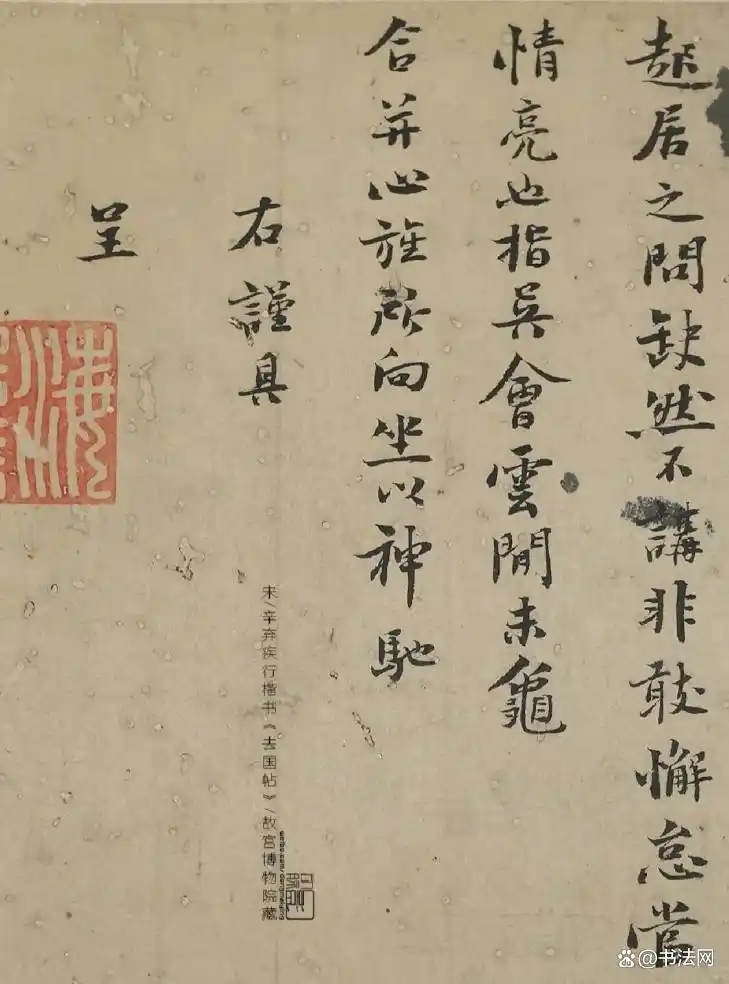 起居之問缺然不講非敢懈怠當
情亮也指吳會雲間未龜
合并心旌所向坐以神馳
右謹具
呈
宋/辛弃疾行楷书《去国帖》/故宫博物院藏
@书法网